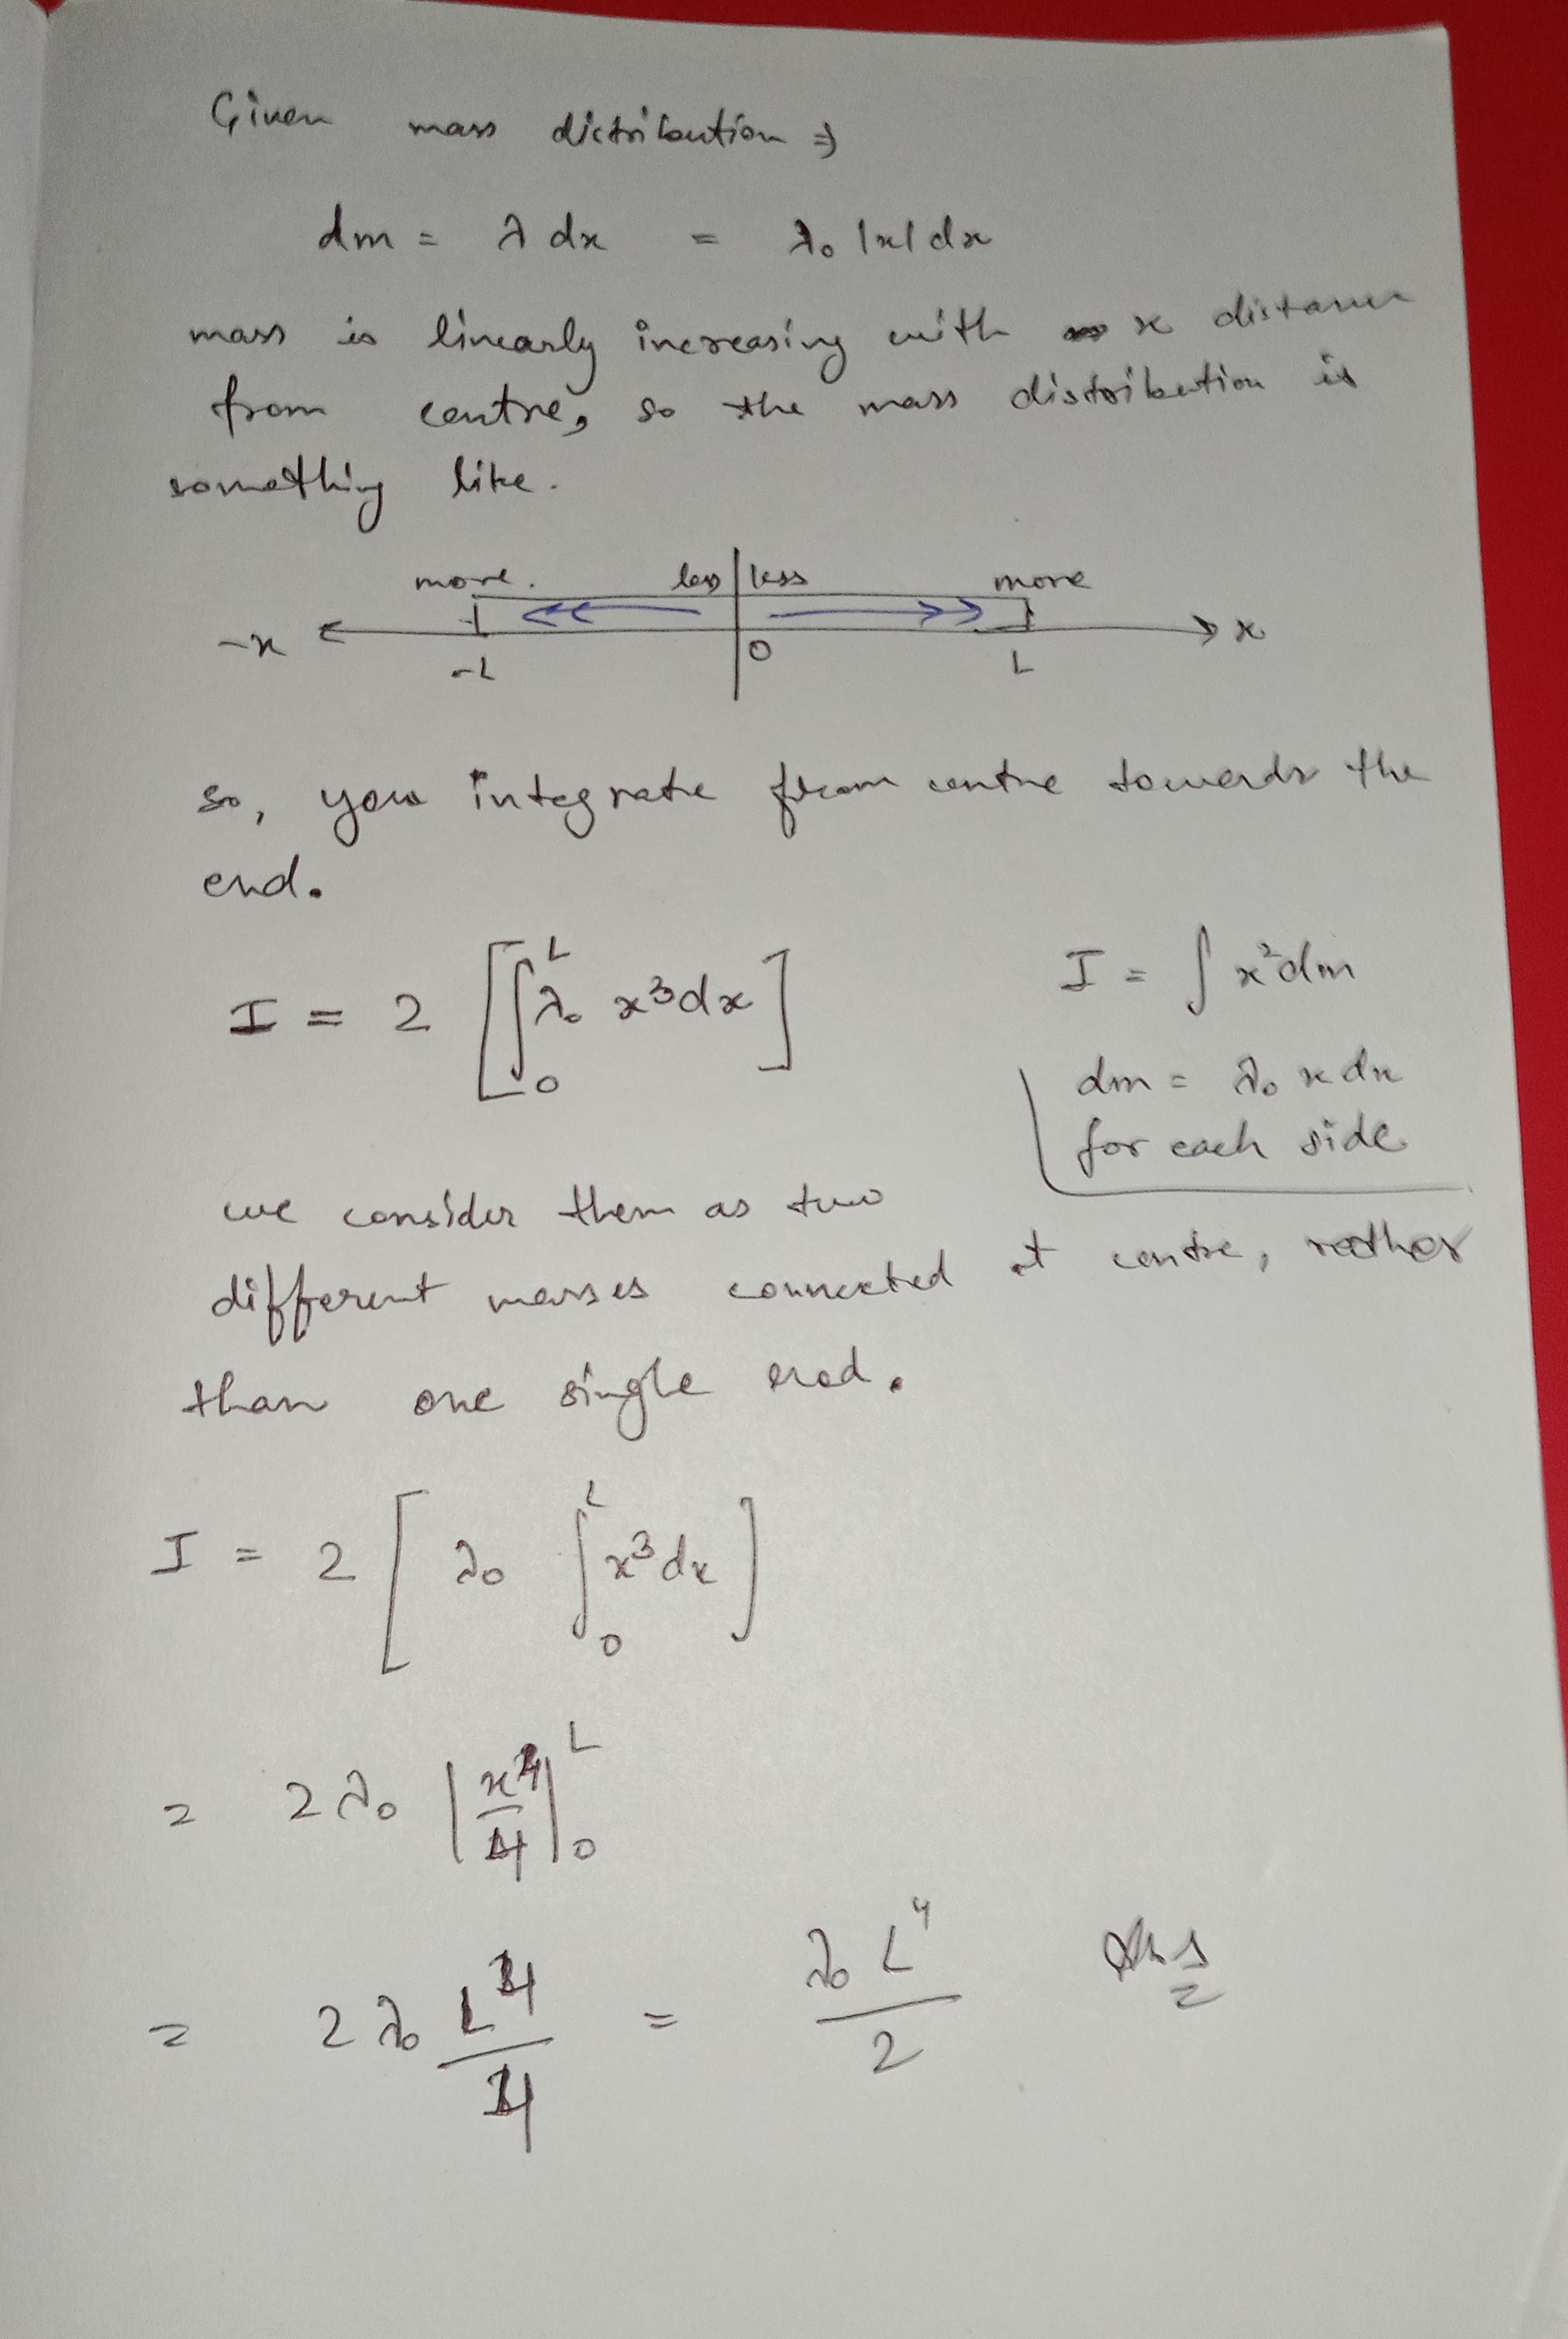 Given mass dictribution ⇒
dm = λ dx = λ₀ |x| dx
mass is linearly increasing with x distance
from centre, so the mass distribution is
something like.
more. less less more
-x x
-L 0 L
so, you integrate from centre towards the
end.
I = 2 [∫₀ᴸ λ₀ x³dx]
I = ∫ x²dm
dm = λ₀ x dx
for each side
we consider them as two
different masses connected at centre, rather
than one single rod.
I = 2 [ λ₀ ∫₀ᴸ x³ dx ]
= 2 λ₀ |x⁴/4|₀ᴸ
= 2 λ₀ L⁴/4 = λ₀ L⁴/2 Ans